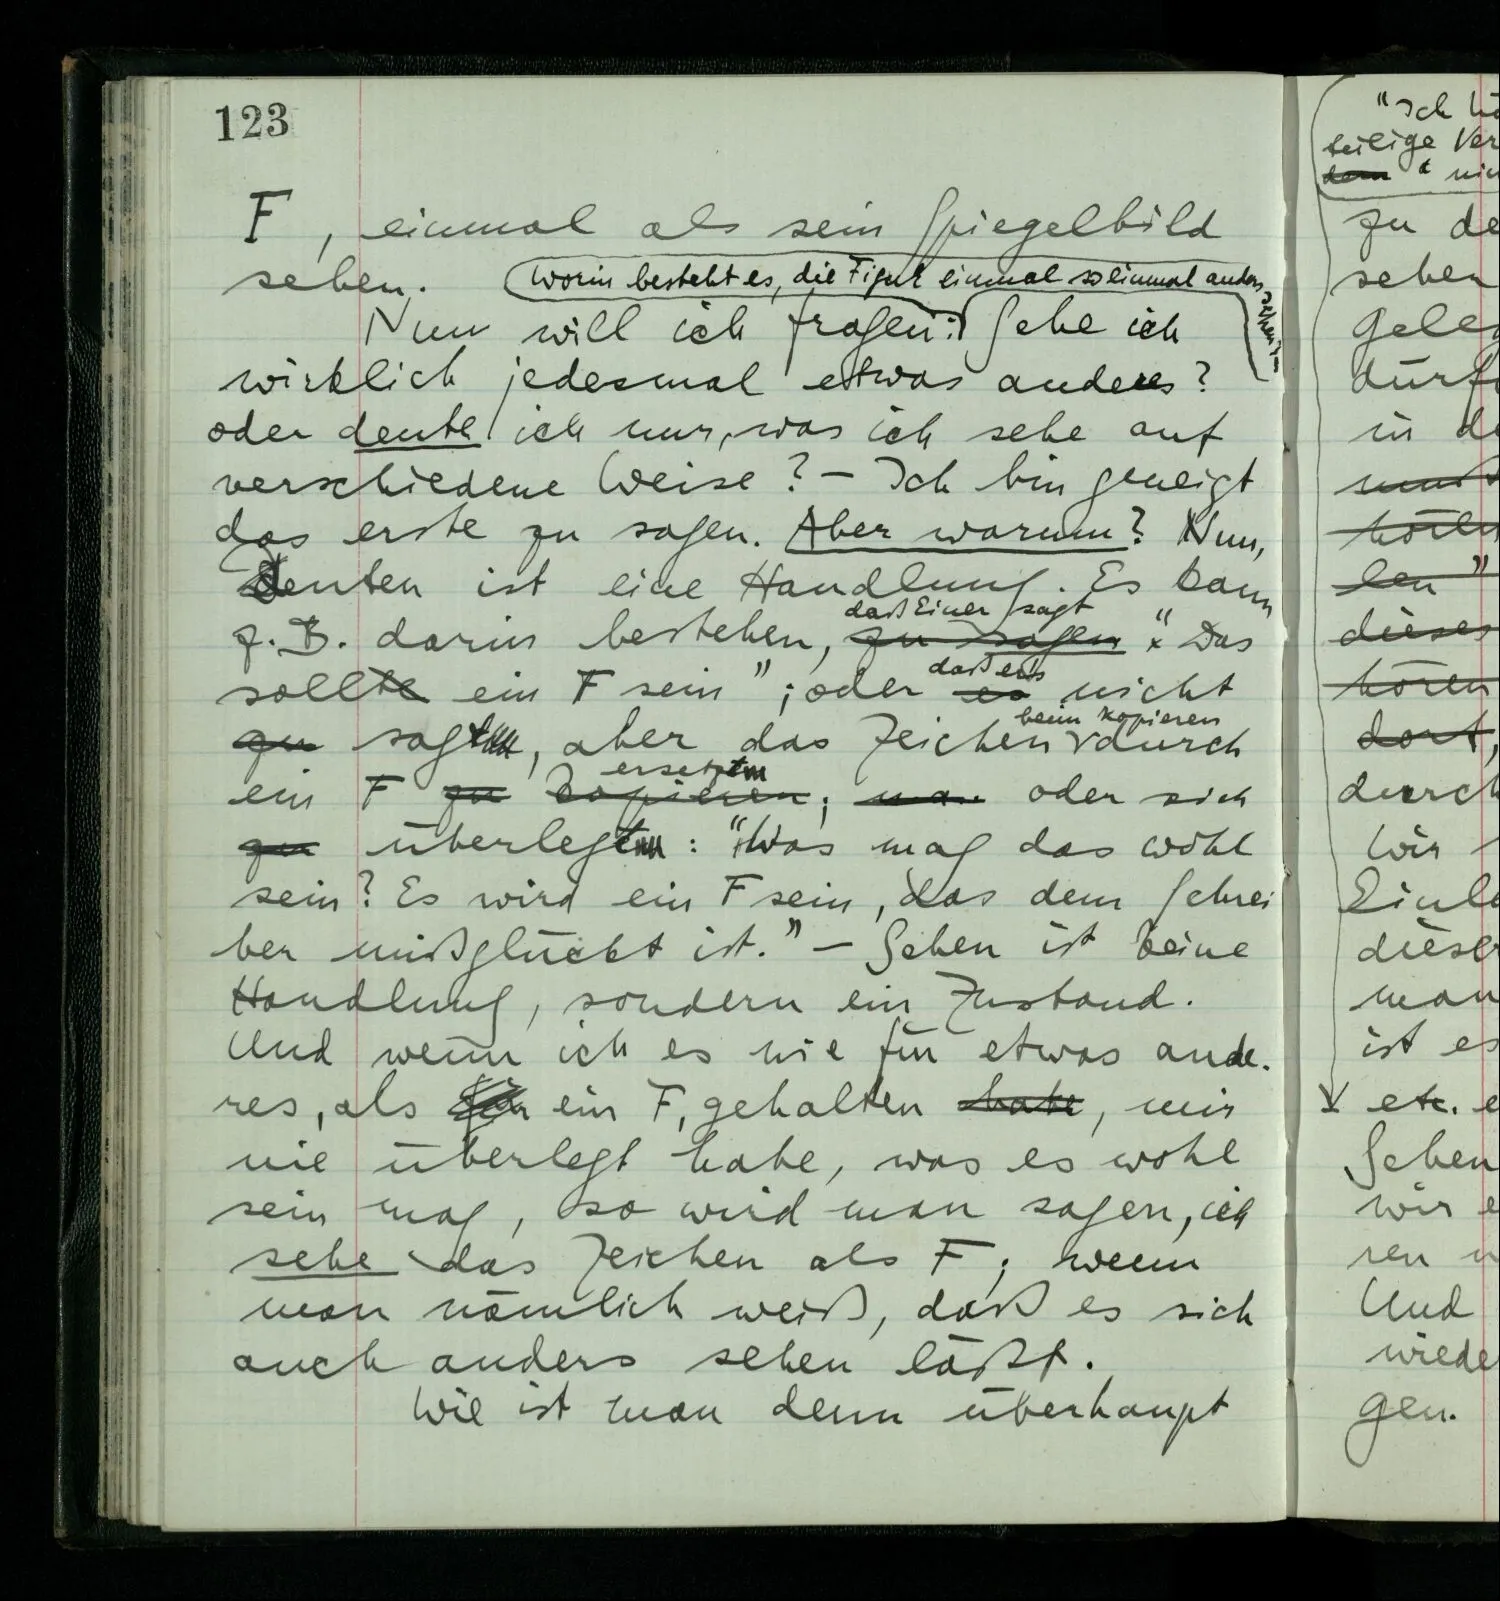 123
F, einmal als sein Spiegelbild
sehen.
worin besteht es, die Figur einmal so einmal anders
sehen?
Nun will ich fragen: Sehe ich
wirklich jedesmal etwas anderes?
oder deute ich nur, was ich sehe auf
verschiedene Weise? – Ich bin geneigt
das erste zu sagen. Aber warum? Nun,
Deuten ist eine Handlung. Es kann
daß Einer sagt
z.B. darin bestehen, zu sagen "Das
daß er's
soll ein F sein"; oder es nicht
beim Kopieren
zu sagt, aber das Zeichen durch
ersetzt
ein F zu kopieren; oder sich
zu überlegt: "Was mag das wohl
sein? Es wird ein F sein, das dem Schrei
ber mißglückt ist." – Sehen ist keine
Handlung, sondern ein Zustand.
Und wenn ich es nie für etwas ande-
res, als für ein F, gehalten habe, mir
nie überlegt habe, was es wohl
sein mag, so wird man sagen, ich
sehe das Zeichen als F; wenn
man nämlich weiß, daß es sich
auch anders sehen läßt.
Wie ist man denn überhaupt
"Ich
zu
dieses
hören
dort,
durch
Wir
man
ist es
etc.
Sehen
wir
Und
gen.